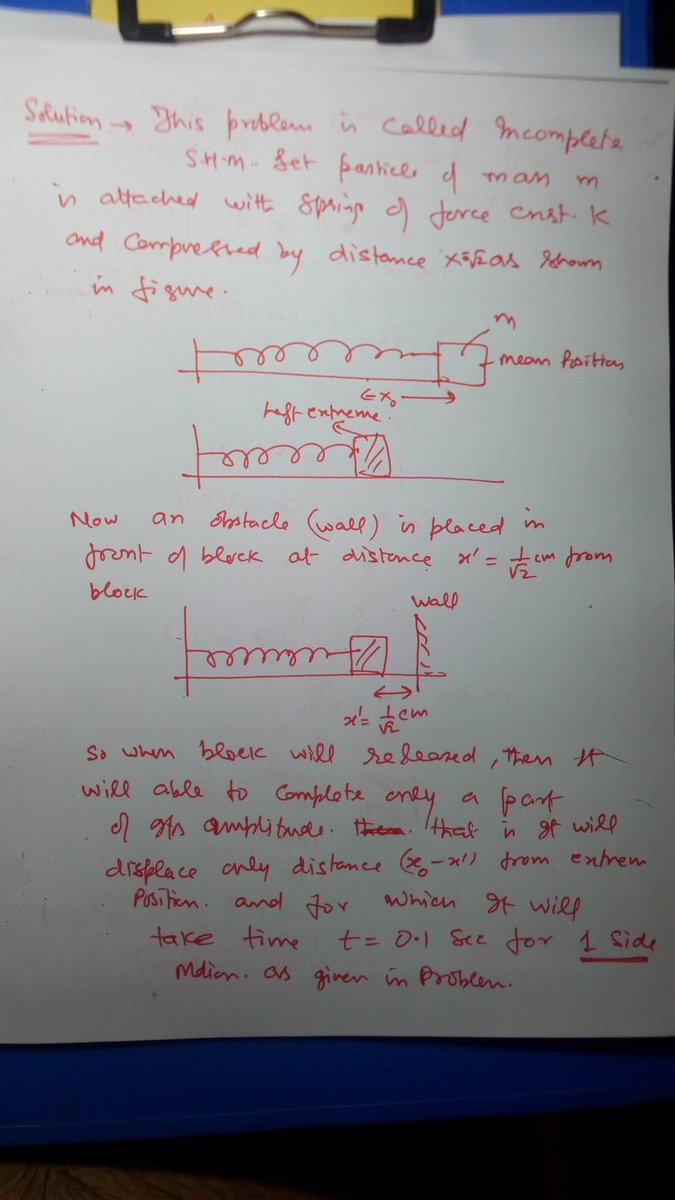 Solution → This problem is called Incomplete
S.H.M.. Let particle of mass m
is attached with spring of force cnst. K
and Compressed by distance x=√2 as shown
in figure.
m
mean Position
← x₀ →
Left extreme.
Now an obstacle (wall) is placed in
front of block at distance x' = 1/√2 cm from
block
wall
x' = 1/√2 cm
So when block will released, then It
will able to complete only a part
of its amplitude. then. that is It will
displace only distance (x₀-x') from extrem
Position. and for which It will
take time t = 0.1 Sec for 1 Side
Motion. as given in Problem.